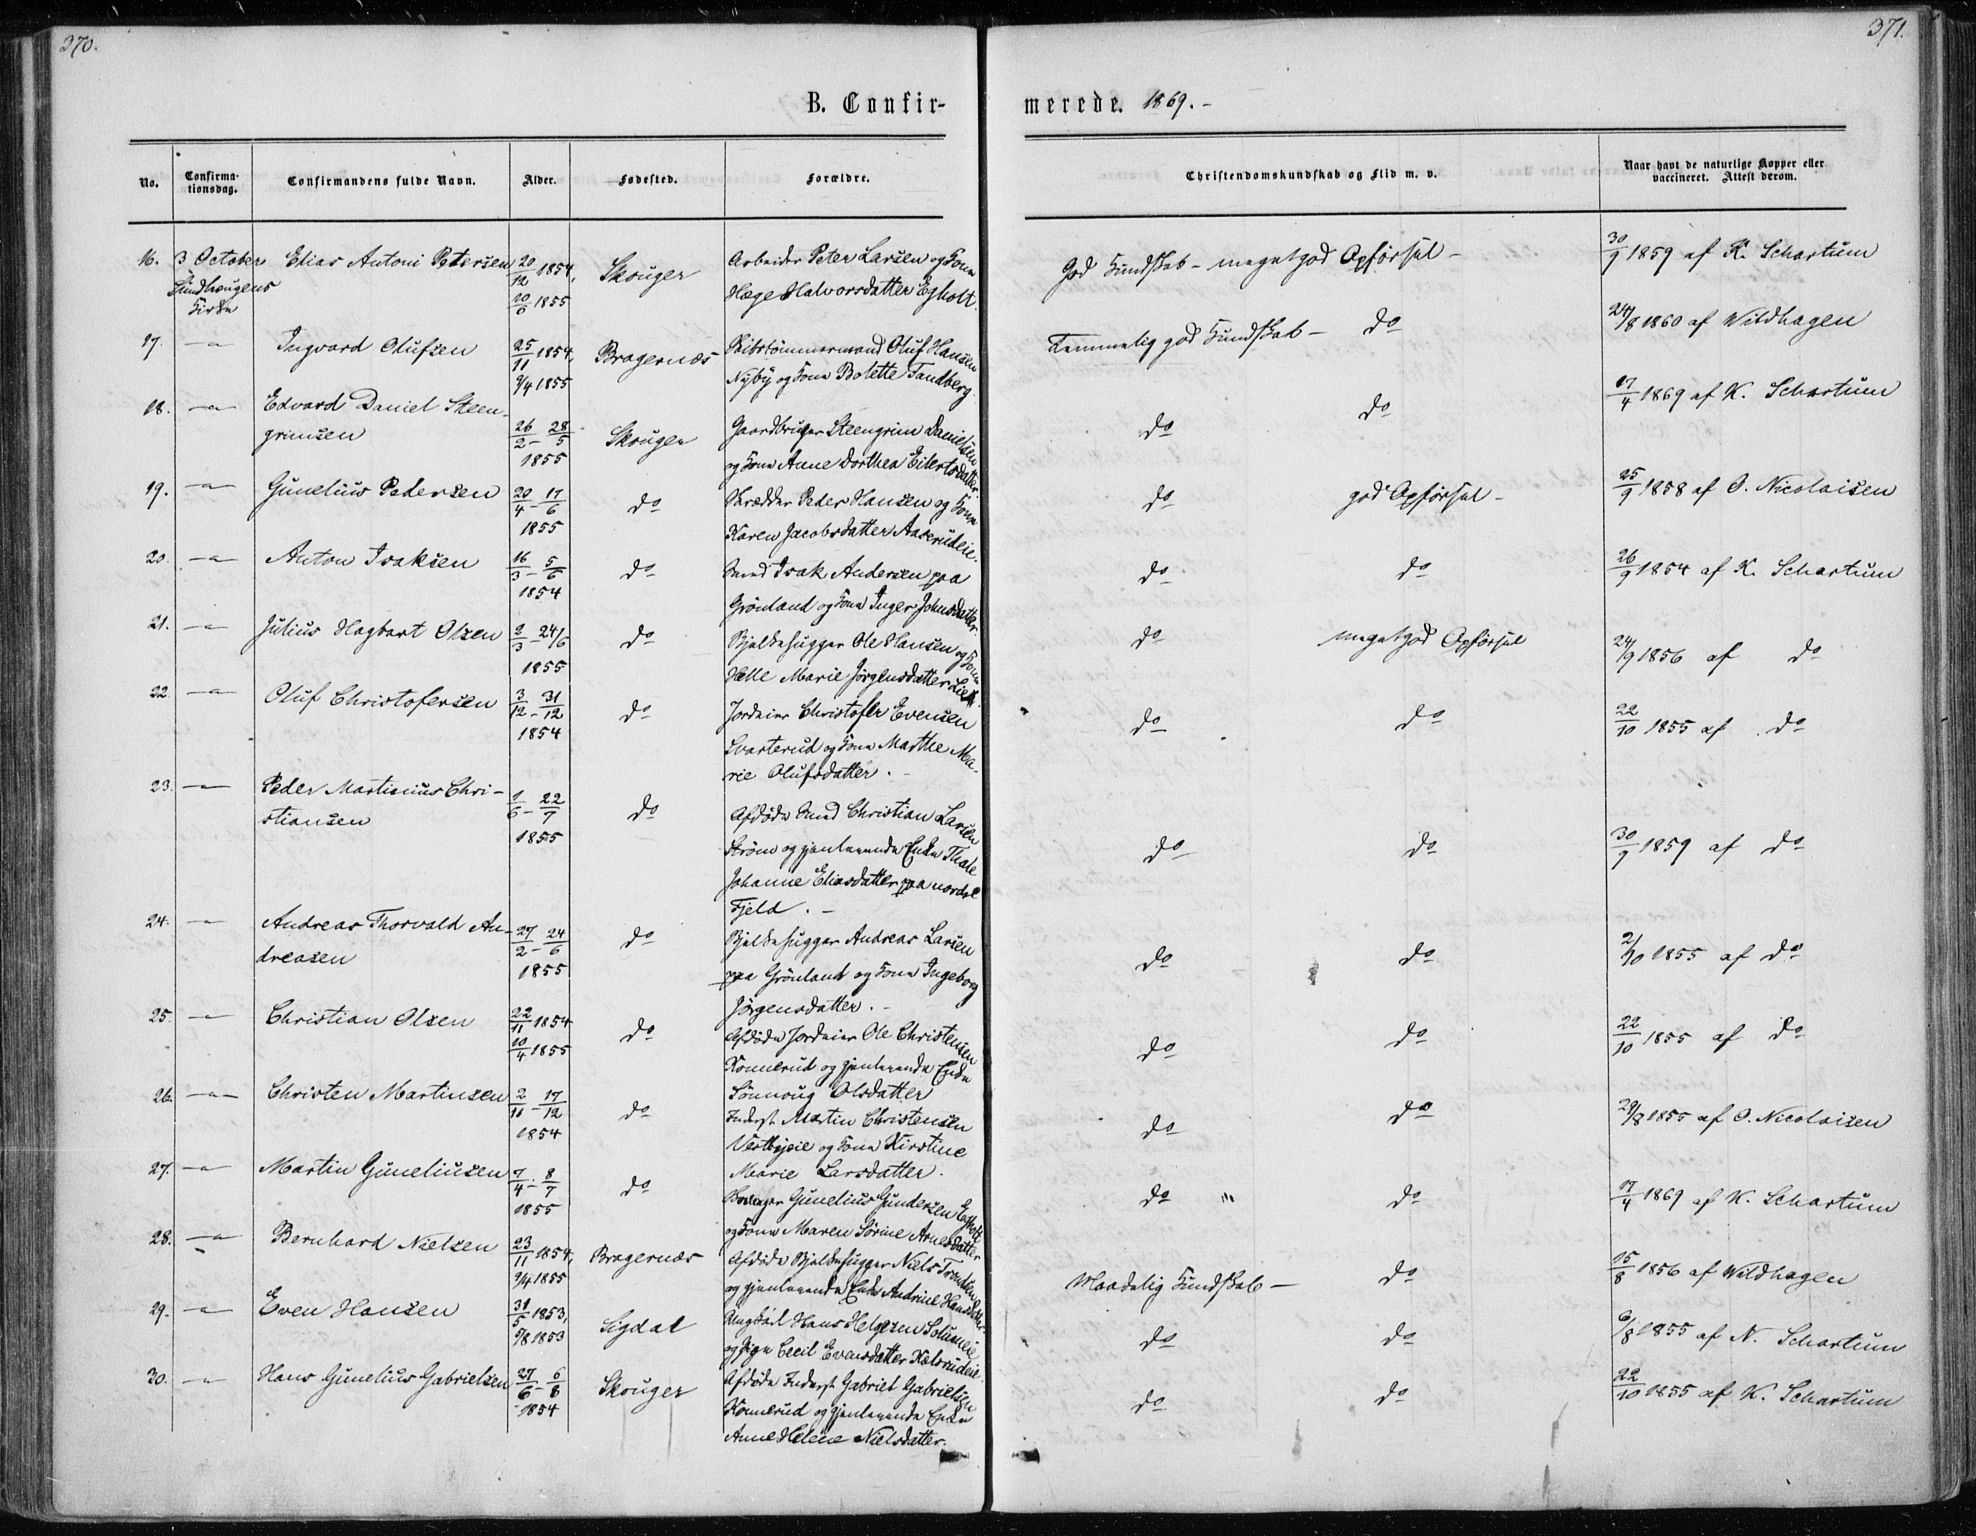 370.
371.
B. Confir-
merede. 1869. -
No.
Confirma-
tionsdag.
Confirmandens fulde Navn.
Alder.
Fødested.
Forældre.
Christendomskundskab og Flid m. v.
Naar havt de naturlige Kopper eller
vaccineret. Attest derom.
16. 3 October Elias Antoni Petersen 20/12 1854, Skouger Arbeider Peter Larsen og Kone God Kundskab - meget god Opførsel - 30/9 1859 af K. Schartum
Kirke 10/6 1855 Hæge Halvorsdatter Egholt.
17. -"- Ingvard Olufsen 25/11 1854, Bragernæs Skibstømmermand Oluf Hansen Temmelig god Kundskab - do 24/8 1860 af Wildhagen
9/4 1855 Nyby og Kone Bolette Tandberg.
18. -"- Edvard Daniel Steen- 26/2 - 28/5 Skouger Gaardbruger Steengrim Danielsen do do 17/4 1869 af K. Schartum
grimsen 1855 og Kone Anne Dorthea Eilertsdatter.
19. -"- Gunelius Pedersen 20/4 - 17/6 do Skrædder Peder Hansen og Kone do god Opførsel - 25/9 1858 af O. Nicolaisen
1855 Karen Jacobsdatter Aaserudeie.
20. -"- Anton Isaksen 16/3 - 5/6 do Smed Isak Andersen paa do do 26/9 1854 af K. Schartum
1854 Grönland og Kone Inger Johnsdatter.
21. -"- Julius Hagbart Olsen 2/3 - 24/6 do Bjelkehugger Ole Hansen og Kone do meget god Opførsel 24/9 1856 af do
1855 Helle Marie Jörgensdatter
22 -"- Oluf Christofersen 3/12 - 31/12 do Jordeier Christofer Evensen do do 22/10 1855 af do
1854 Svarterud og Kone Marthe Ma-
rie Olufsdatter. -
23. -"- Peder Martinius Chri- 1/6 - 22/7 do Afdöde Smed Christian Larsen do do 30/9 1859 af do
stiansen 1855 Ström og gjenlevende Enke Thale
Johanne Eliasdatter paa nordre
Fjeld. -
24. -"- Andreas Thorvald An- 27/2 - 24/6 do Bjelkehugger Andreas Larsen do do 2/10 1855 af do
dreasen 1855 paa Grönland og Kone Ingeborg
Jörgensdatter. -
25. -"- Christian Olsen 22/11 1854 do Afdöde Jordeier Ole Christensen do do 22/10 1855 af do
10/4 1855 Konnerud og gjenlevende Enke
Sönnoug Olsdatter
26. -"- Christen Martinsen 2/11 - 17/12 do Inderst Martin Christensen do do 29/8 1855 af O. Nicolaisen
1854 Vestbyeie og Kone Kirstine
Marie Larsdatter.
27. -"- Martin Guneliusen 7/4 - 8/7 do Gunelius Gundersen Egholt do do 17/4 1869 af K. Schartum
1855 og Kone Maren Sörine Arnesdatter
28. -"- Bernhard Nielsen 23/11 1854, Bragernæs Afdöde Bjelkehugger Niels Maadelig Kundskab - do 15/8 1856 af Wildhagen
9/4 1855 og gjenlevende Enke Andrine Hansdatter.
29. -"- Even Hansen 31/5 1853, Sigdal Ungkarl Hans Helgesen do do 6/8 1855 af N. Schartum
1853 og Pige Cecil Evensdatter
30. -"- Hans Gunelius Gabrielsen 27/6 - 6/8 Skouger Afdöde Inderst Gabriel Gabrielsen do do 22/10 1855 af K. Schartum
1854 Konnerud og gjenlevende Enke
Anne Helene Nielsdatter.